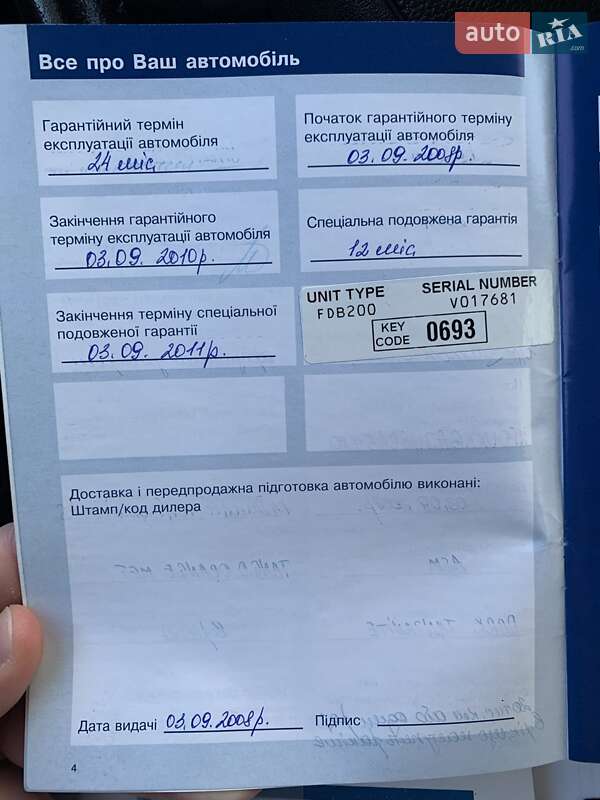 auto RIA.com
Все про Ваш автомобіль
Гарантійний термін
експлуатації автомобіля
24 міс
Початок гарантійного терміну
експлуатації автомобіля
03.09.2008р.
Закінчення гарантійного
терміну експлуатації автомобіля
03.09.2010р.
Спеціальна подовжена гарантія
12 міс
Закінчення терміну спеціальної
подовженої гарантії
03.09.2011р.
UNIT TYPE
FDB200
SERIAL NUMBER
V017681
KEY
CODE
0693
Доставка і передпродажна підготовка автомобілю виконані:
Штамп/код дилера
Дата видачі 03.09.2008р. Підпис
4